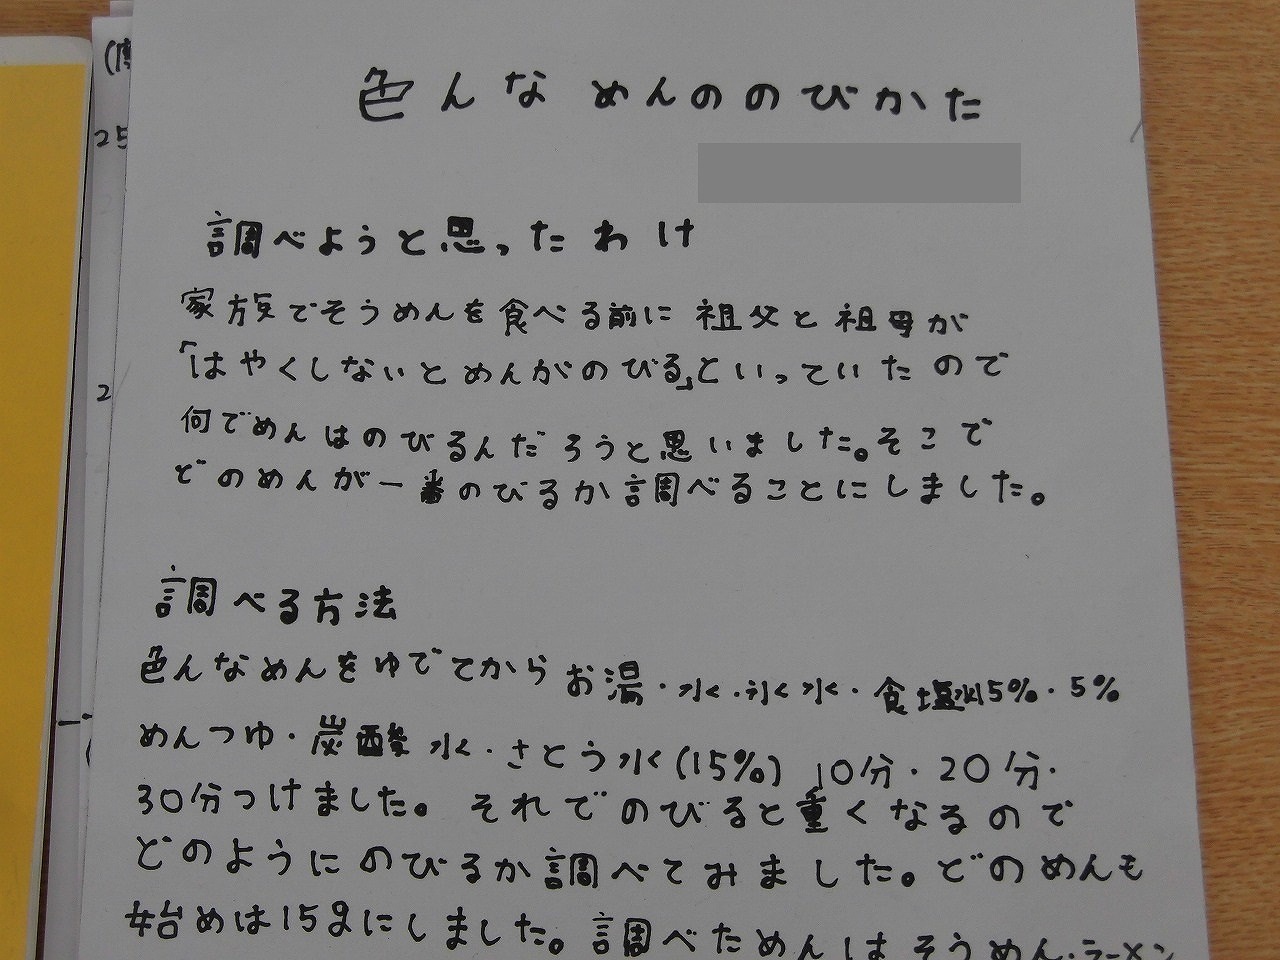 色んなめんののびかた
調べようと思ったわけ
家族でそうめんを食べる前に祖父と祖母が
「はやくしないとめんがのびる」といっていたので
何でめんはのびるんだろうと思いました。そこで
どのめんが一番のびるか調べることにしました。
調べる方法
色んなめんをゆでてからお湯・水・氷水・食塩水5%・5%
めんつゆ・炭酸水・さとう水(15%) 10分・20分・
30分つけました。それでのびると重くなるので
どのようにのびるか調べてみました。どのめんも
始めは15gにしました。調べためんはそうめん・ラーメン
25
2